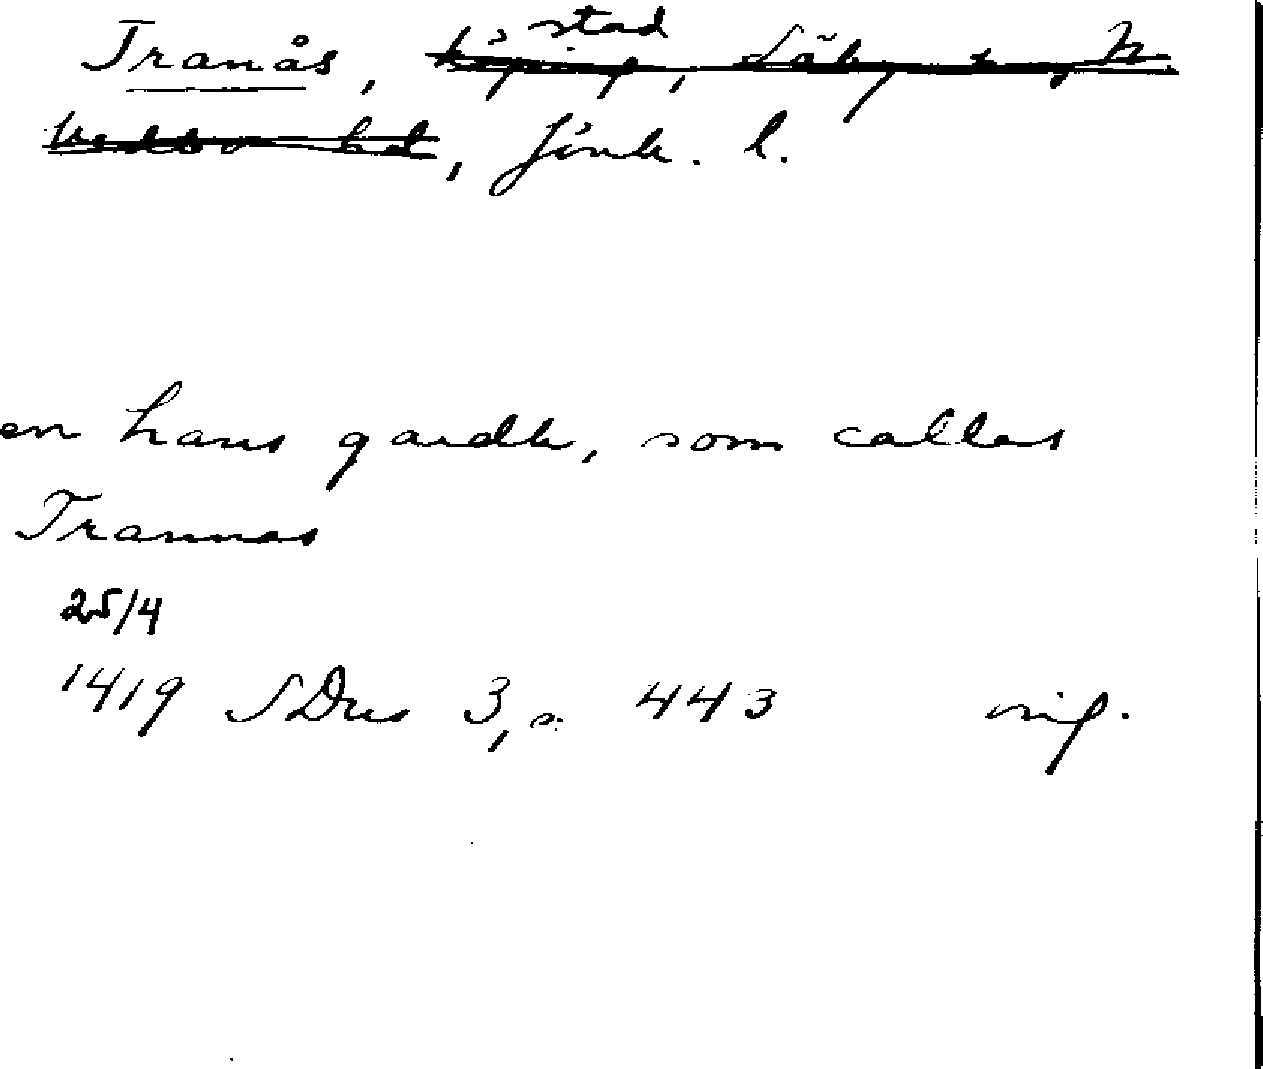 stad
Tranås, köping, Säby s, N.
Vedbo hd, Jönk. l.
en hans gardh, som callas
Trannas
25/4
1419 SDns 3, s. 443 orig.